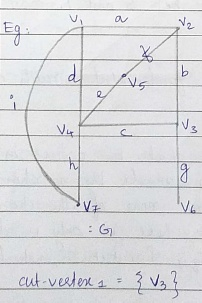 Eg:
V₁ a V₂
i d b
e V₅
V₄ c V₃
h g
V₇ V₆
: G₁
cut-vertex₁ = { V₃ }